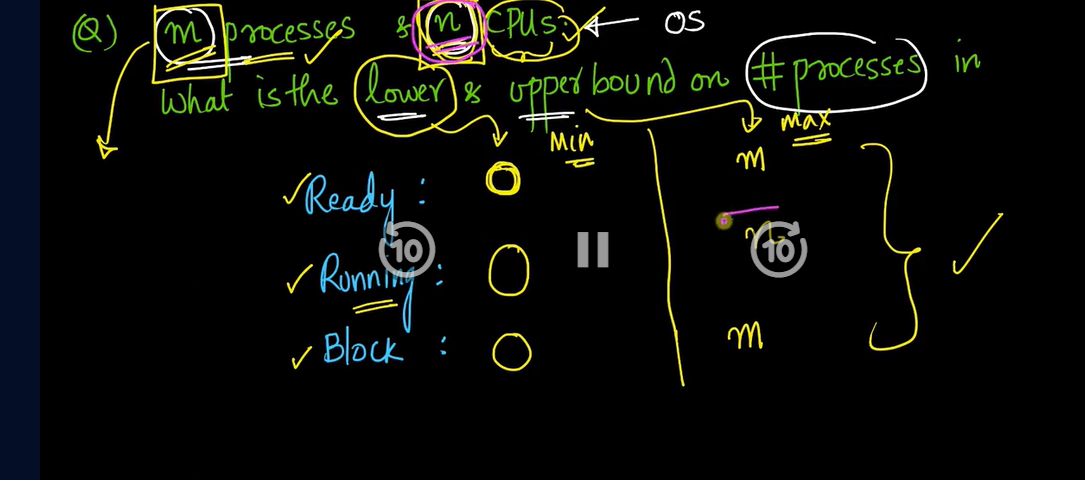 Q) m processes & n CPUs: ← OS
What is the lower & upper bound on # processes in
Min max
Ready : O m
Running : O
Block : O m
10 10